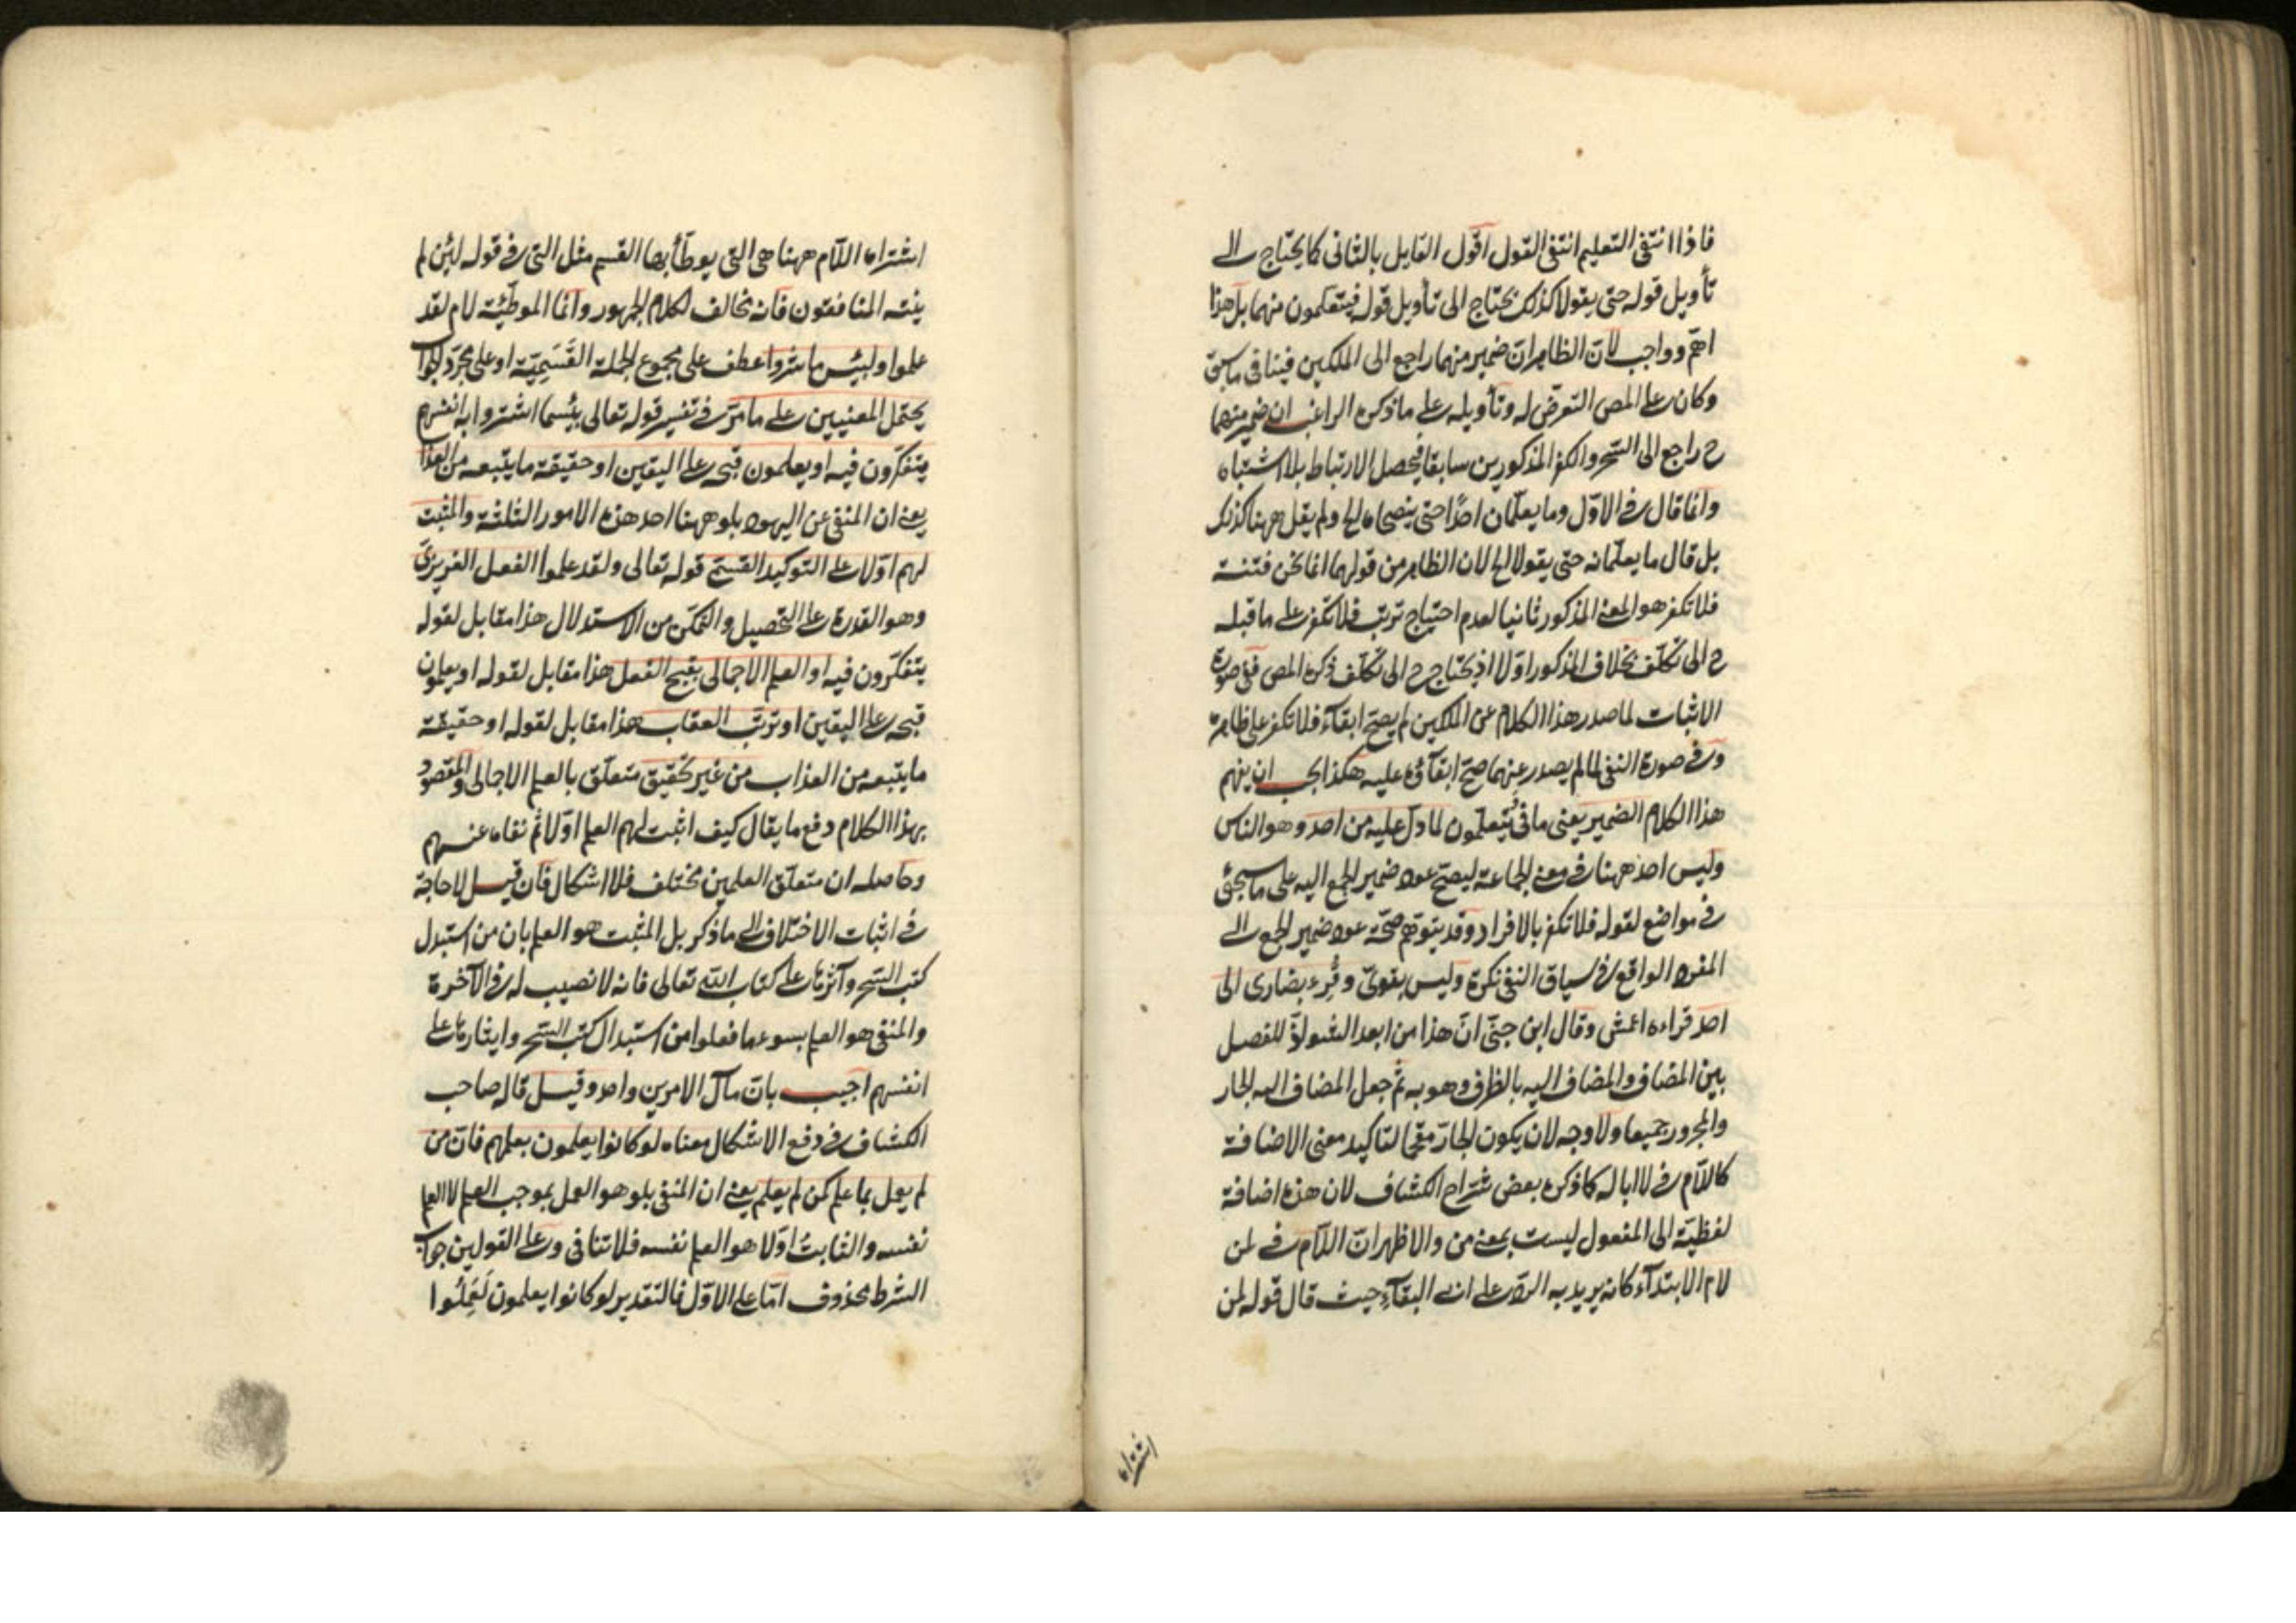 فاذا انتفى التعليم انتفى القول اقول القايل بالثانى كما يحتاج الى
تأويل قوله حتى يقولا كذلك يحتاج الى تأويل قوله فيتعلمون منهما بل هذا
اهم وواجب لان الظاهر ان ضمير منهما راجع الى الملكين فينافى ما سبق
وكان على المص التعرض له وتأويله على ما ذكره الراغب ان ضمير منهما
ح راجع الى السحر والكفر المذكورين سابقا فيحصل الارتباط بلا اشتباه
وانما قال فى الاول وما يعلمان احدا حتى ينصحاه الخ ولم يقل ههنا كذلك
بل قال ما يعلمانه حتى يقولا الخ لان الظاهر من قولهما انما نحن فتنة
فلا تكفر هو المعنى المذكور ثانيا لعدم احتياج ترتب فلا تكفر على ما قبله
ح الى تكلف بخلاف المذكور اولا اذ يحتاج ح الى تكلف ذكره المص ففى صورة
الاثبات لما صدر هذا الكلام عن الملكين لم يصح ابقاء فلا تكفر على ظاهره
وفى صورة النفى لما لم يصدر عنهما صح ابقاؤه عليه هكذا يجب ان يفهم
هذا الكلام الضمير يعنى ما فى فيتعلمون لما دل عليه من احد وهو الناس
وليس احد ههنا فى معنى الجماعة ليصح عود ضمير الجمع اليه على ما سيجئ
فى مواضع لقوله فلا تكفر بالافراد وقد يتوهم صحة عود ضمير الجمع الى
المفرد الواقع فى سياق النفى نكرة وليس بقوى وقرء بضارى الى
احد قراءه اعمش وقال ابن جنى ان هذا من ابعد الشواذ للفصل
بين المضاف والمضاف اليه بالظرف وهو به ثم جعل المضاف اليه الجار
والمجرور جميعا ولا وجه لان يكون الجار مقحما لتاكيد معنى الاضافة
كاللام فى لا ابا له كما ذكره بعض شراح الكشاف لان هذه اضافة
لفظية الى المفعول ليست بمعنى من والاظهر ان اللام فى لمن
لام الابتداء كانه يريد به الرد على ابى البقاء حيث قال قوله لمن
اشتراه
اشتراه اللام ههنا هى التى يوطأ بها القسم مثل التى فى قوله لئن لم
ينته المنافقون فانه مخالف لكلام الجمهور وانما الموطئة لام لقد
علموا ولبئس ما شروا عطف على مجموع الجملة القسمية او على مجرد الجواب
يحتمل المعنيين على ما مر فى تفسير قوله تعالى بئسما اشتروا به انفسهم
يتفكرون فيه او يعلمون قبحه على اليقين او حقيقة ما يتبعه من العذاب
يعنى ان المنفى عن اليهود بلو ههنا احد هذه الامور الثلثة والمثبت
لهم اولا على التوكيد القسمى قوله تعالى ولقد علموا الفعل الغريزى
وهو القدرة على التحصيل والتمكن من الاستدلال هذا مقابل لقوله
يتفكرون فيه او العلم الاجمالى بقبح الفعل هذا مقابل لقوله او يعلمون
قبحه على اليقين او ترتب العقاب هذا مقابل لقوله او حقيقة
ما يتبعه من العذاب من غير تحقيق متعلق بالعلم الاجمالى والمقصود
بهذا الكلام دفع ما يقال كيف اثبت لهم العلم اولا ثم نفاه عنهم
وحاصله ان متعلق العلمين مختلف فلا اشكال فان قيل لا حاجة
فى اثبات الاختلاف الى ما ذكر بل المثبت هو العلم بان من استبدل
كتب السحر وآثرها على كتاب الله تعالى فانه لا نصيب له فى الآخرة
والمنفى هو العلم بسوء ما فعلوا من استبدال كتب السحر وايثارها على
انفسهم اجيب بان مآل الامرين واحد وقيل قاله صاحب
الكشاف فى دفع الاشكال معناه لو كانوا يعلمون بعلمهم فان من
لم يعمل بما علم كمن لم يعلم يعنى ان المنفى بلو هو العمل بموجب العلم لا العلم
نفسه والثابت اولا هو العلم نفسه فلا تنافى وعلى القولين جواب
الشرط محذوف اما على الاول فالتقدير لو كانوا يعلمون لعملوا